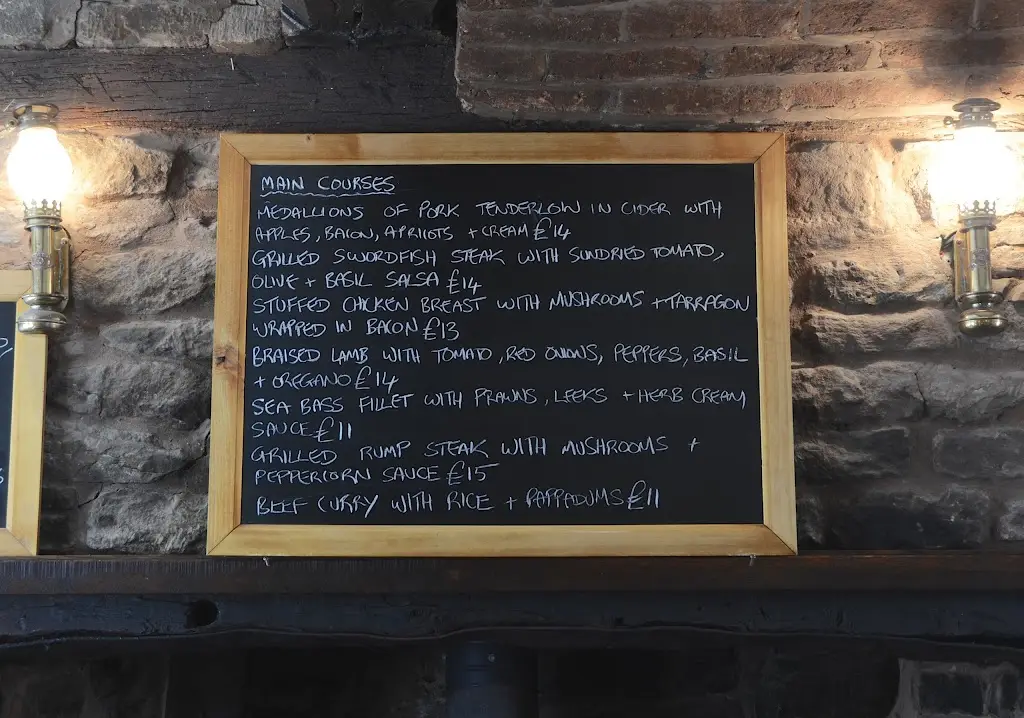 MAIN COURSES
MEDALLIONS OF PORK TENDERLOIN IN CIDER WITH
APPLES, BACON, APRICOTS + CREAM £14
GRILLED SWORDFISH STEAK WITH SUNDRIED TOMATO,
OLIVE + BASIL SALSA £14
STUFFED CHICKEN BREAST WITH MUSHROOMS + TARRAGON
WRAPPED IN BACON £13
BRAISED LAMB WITH TOMATO, RED ONIONS, PEPPERS, BASIL
+ OREGANO £14
SEA BASS FILLET WITH PRAWNS, LEEKS + HERB CREAM
SAUCE £11
GRILLED RUMP STEAK WITH MUSHROOMS +
PEPPERCORN SAUCE £15
BEEF CURRY WITH RICE + PAPPADUMS £11